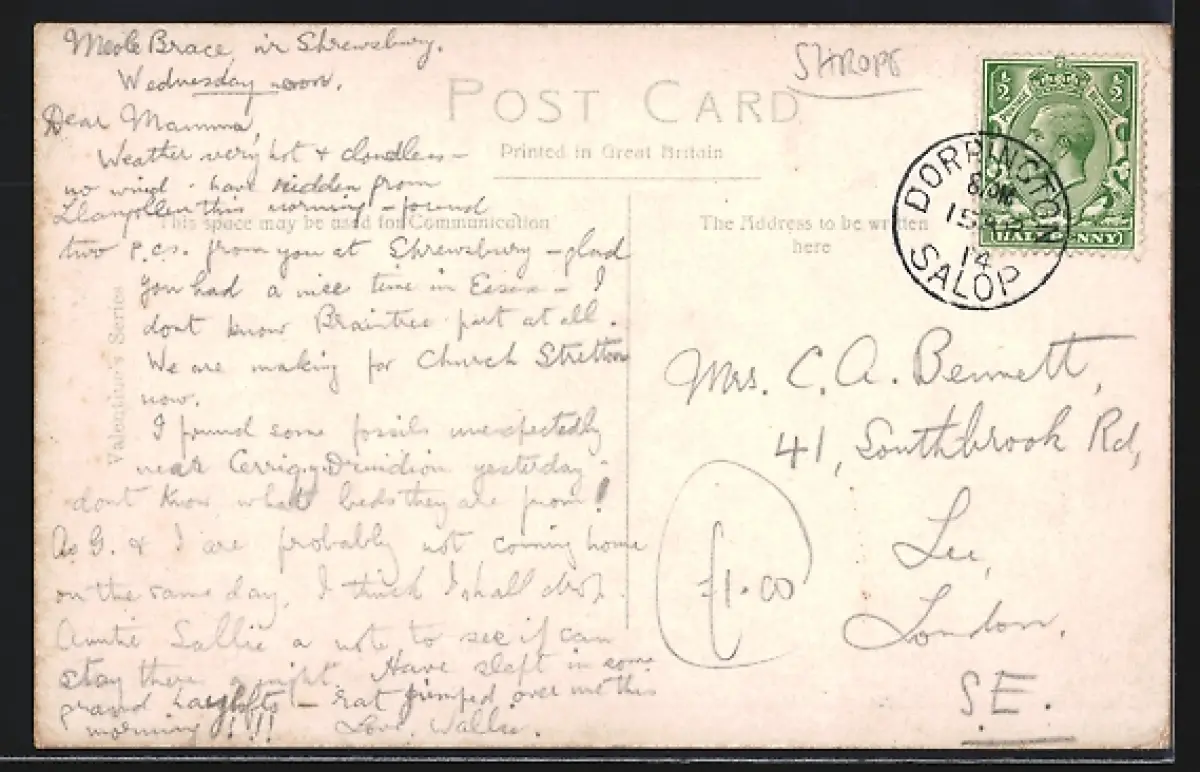 Meole Brace nr Shrewsbury.
Wednesday noon.
Dear Mamma,
Weather very hot & cloudless –
no wind - have ridden from
Llangollen this morning – found
two p.cs. from you at Shrewsbury – glad
you had a nice time in Essex – I
dont know Braintree part at all.
We are making for Church Stretton
now.
I found some fossils unexpectedly
near Cerrig-y-Druidion yesterday -
dont know what beds they are from!
As G. & I are probably not coming home
on the same day, I think I shall drop
Auntie Sallie a note to see if can
stay there a night. Have slept in some
grand haylofts – rat jumped over me this
morning!!!! Love, Wallie.
POST CARD
Printed in Great Britain
This space may be used for Communication
The Address to be written
here
Valentine's Series
SHROPS
½ ½
HALFPENNY
DORRINGTON
8 PM
14
SALOP
Mrs. C. A. Bennett,
41, Southbrook Rd,
Lee,
London.
S.E.
£1.00